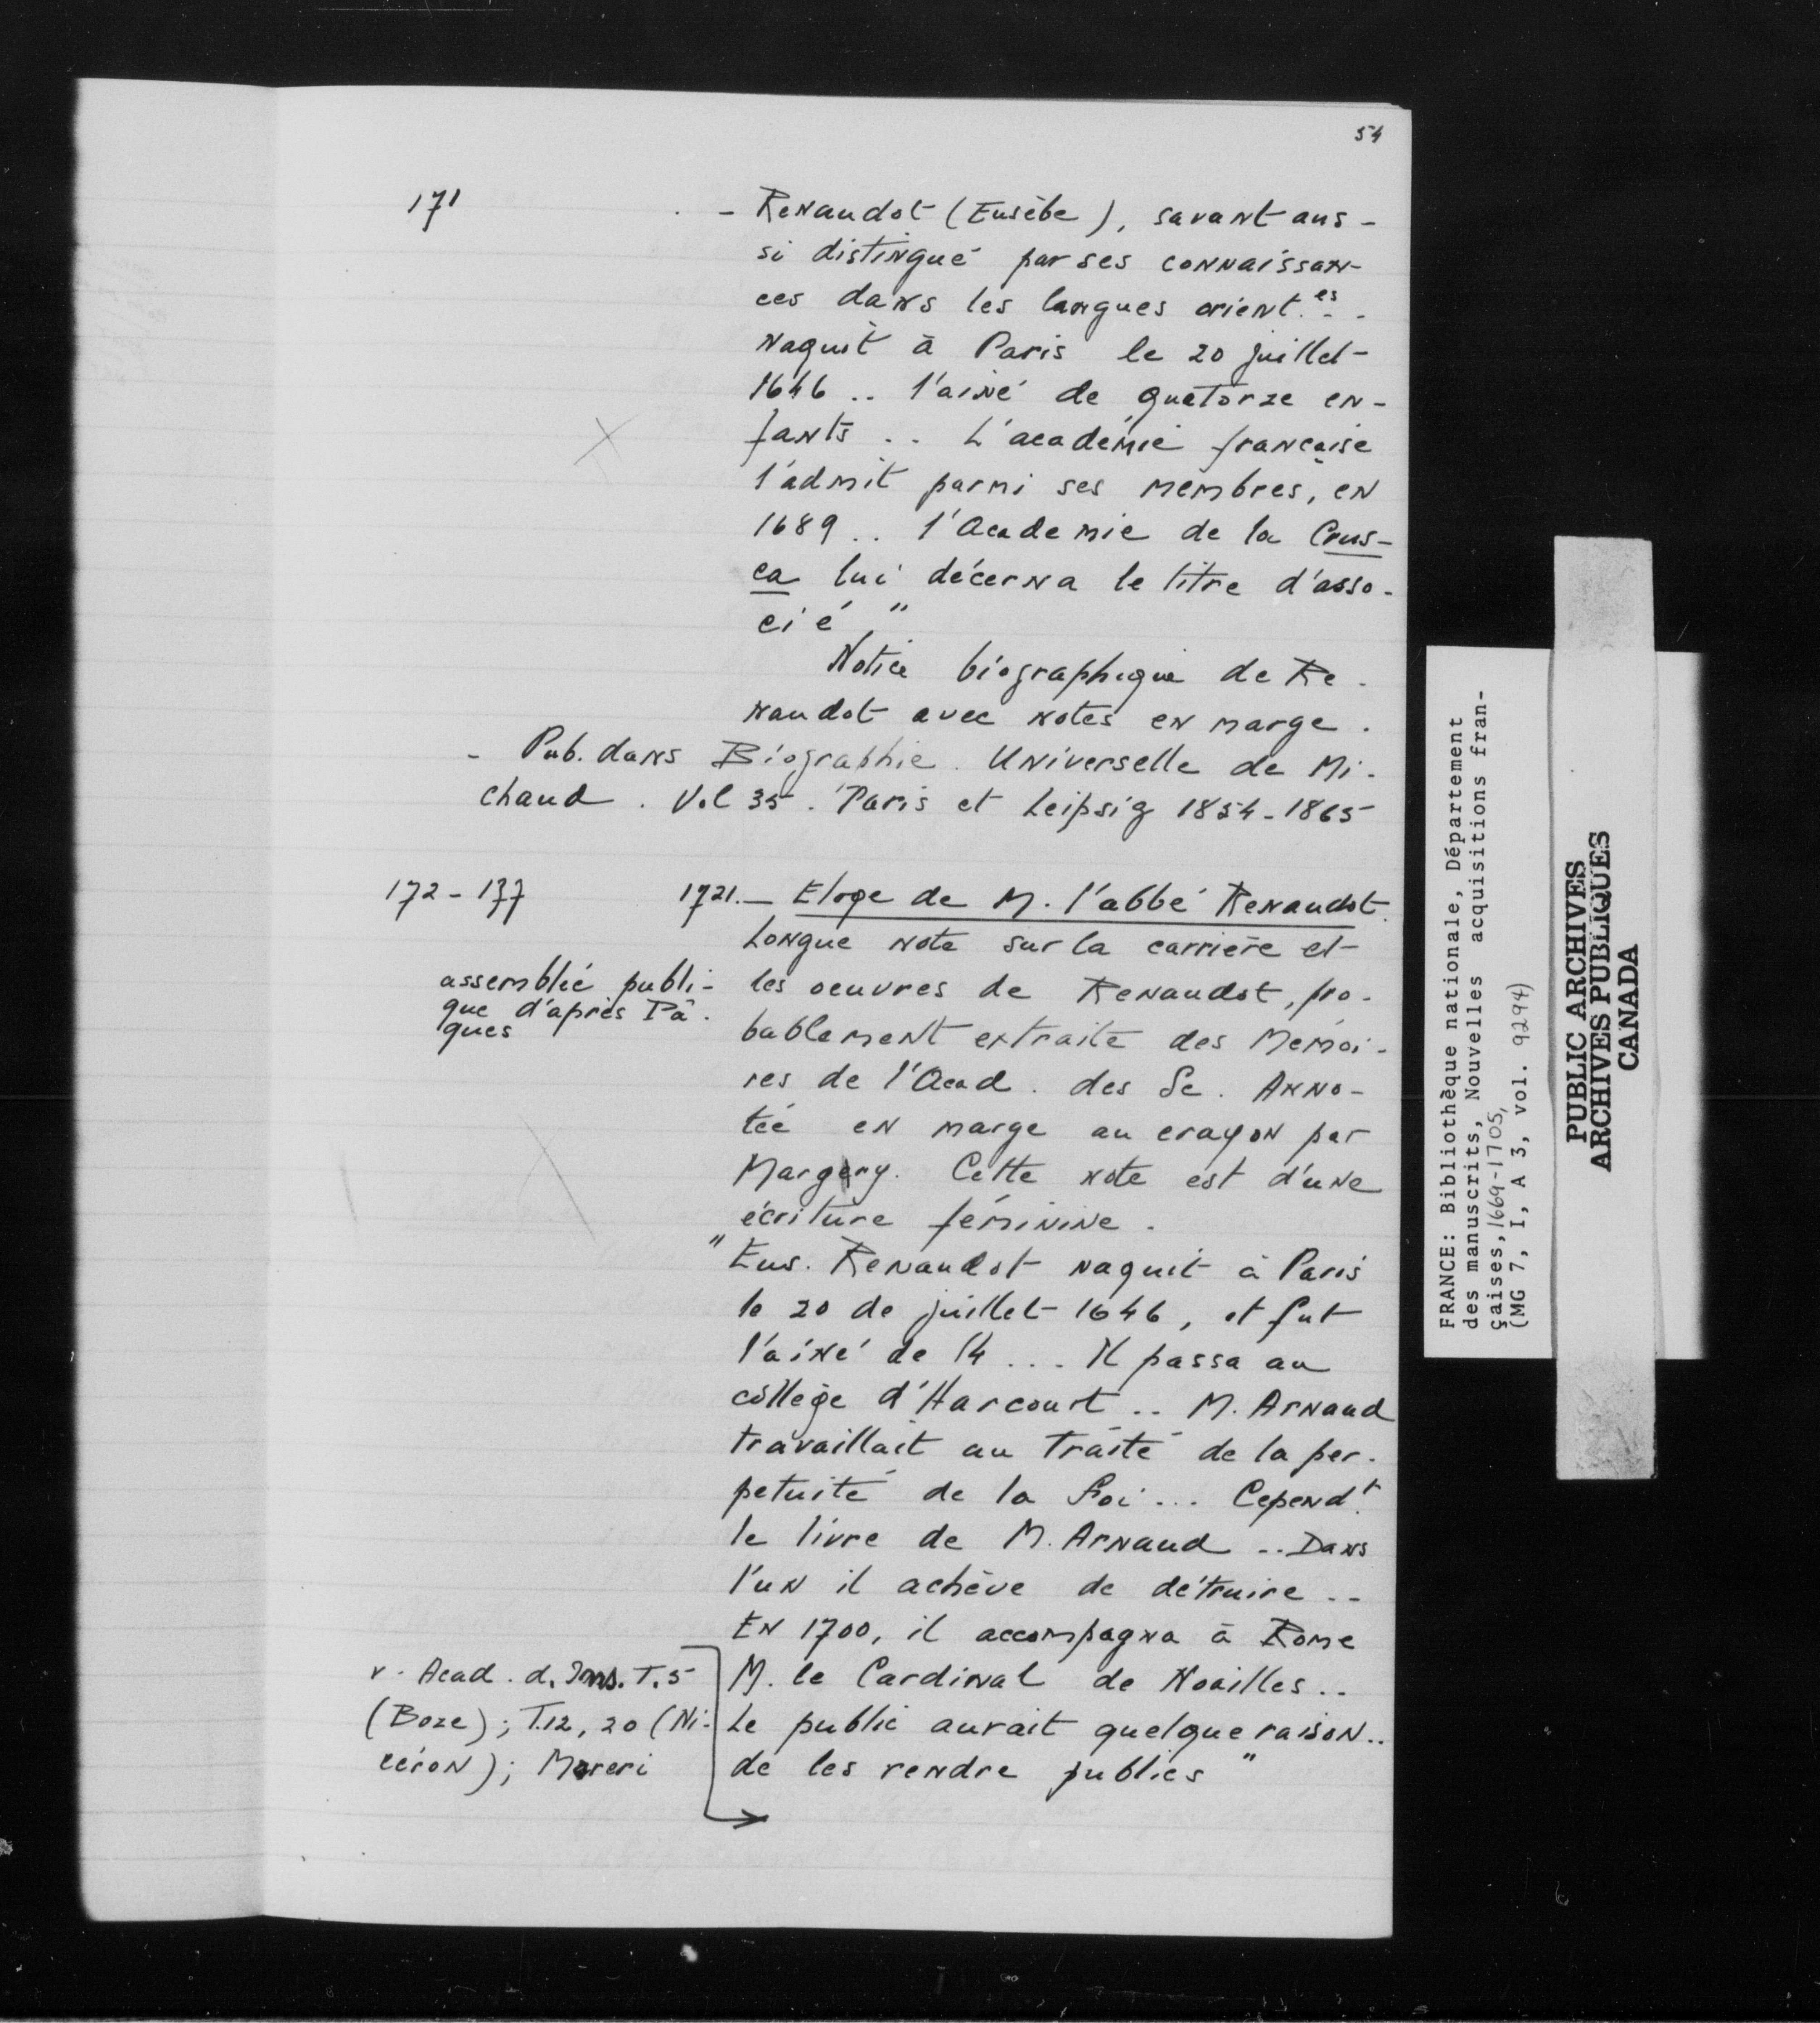 54
171
- Renaudot (Eusèbe), savant aus-
si distingué par ses connaissan-
ces dans les langues orient.es..
naquit à Paris le 20 juillet
1646 .. l'ainé de quatorze en-
fants .. L'académie française
l'admit parmi ses membres, en
1689 .. l'Academie de la Crus-
ca lui décerna le titre d'asso-
cié"
Notice biographique de Re-
naudot avec notes en marge.
- Pub. dans Biographie Universelle de Mi-
chaud. Vol 35. Paris et Leipsig 1854-1865
172-177
1721.- Eloge de M. l'abbé Renaudot.
Longue note sur la carrière et
les oeuvres de Renaudot, pro-
bablement extraite des Mémoi-
res de l'Acad. des Sc. Anno-
tée en marge au crayon par
Margry. Cette note est d'une
écriture féminine.
assemblée publi-
que d'après Pâ-
ques
"Eus. Renaudot naquit à Paris
le 20 de juillet 1646, et fut
l'aîné de 14 ... Il passa au
collège d'Harcourt .. M. Arnaud
travaillait au Traité de la per-
petuité de la foi ... Cepend.t
le livre de M. Arnaud .. Dans
l'un il achève de détruire ..
En 1700, il accompagna à Rome
M. le Cardinal de Noailles ..
Le public aurait quelque raison ..
de les rendre publics"
v. Acad. d. Ins. T. 5
(Boze); T.12, 20 (Ni-
céron); Moreri
FRANCE: Bibliothèque nationale, Département
des manuscrits, Nouvelles acquisitions fran-
çaises, 1669-1705,
(MG 7, I, A 3, vol. 9294)
PUBLIC ARCHIVES
ARCHIVES PUBLIQUES
CANADA